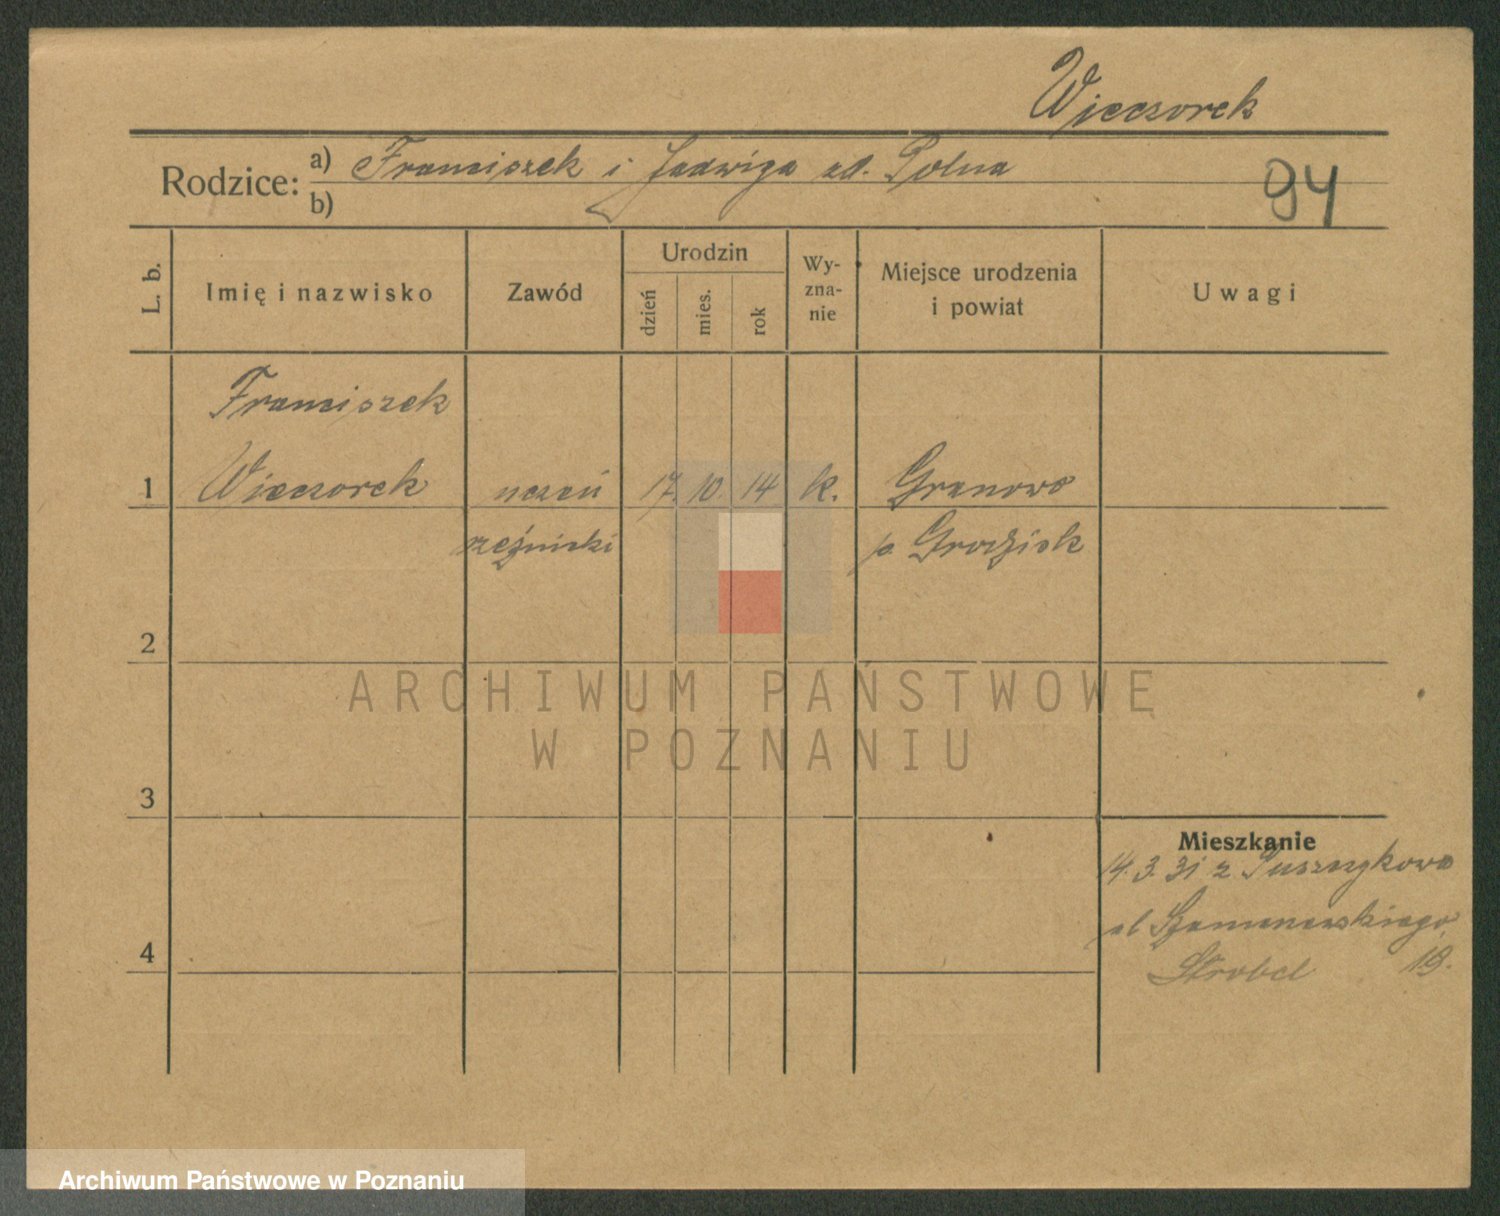 Wieczorek
Rodzice: a) Franciszek i Jadwiga zd. Polna
b)
94
L. b. Imię i nazwisko Zawód Urodzin dzień mies. rok Wy-zna-nie Miejsce urodzenia i powiat Uwagi
Franciszek
1 Wieczorek uczeń 17. 10. 14 k. Granowo
rzeźnicki p. Grodzisk
2
ARCHIWUM PAŃSTWOWE
W POZNANIU
3
Mieszkanie
14.3.31 z Puszczykowa
ul
4 Strobel 19.
Archiwum Państwowe w Poznaniu